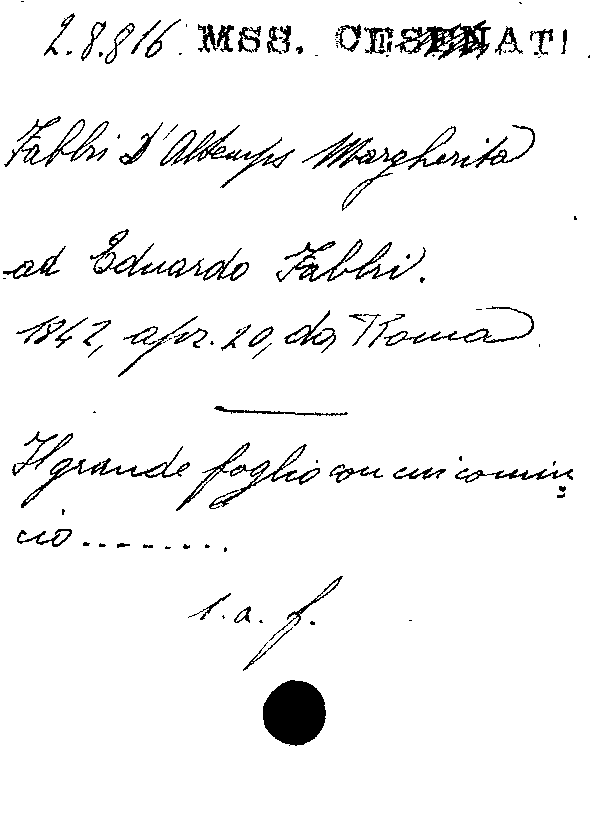 2.8.816 MSS. CESENATI
Fabbri D'Altemps Margherita
ad Eduardo Fabbri.
1842, apr. 20, da Roma
Il grande foglio con cui comin=
cio........
l. a. f.